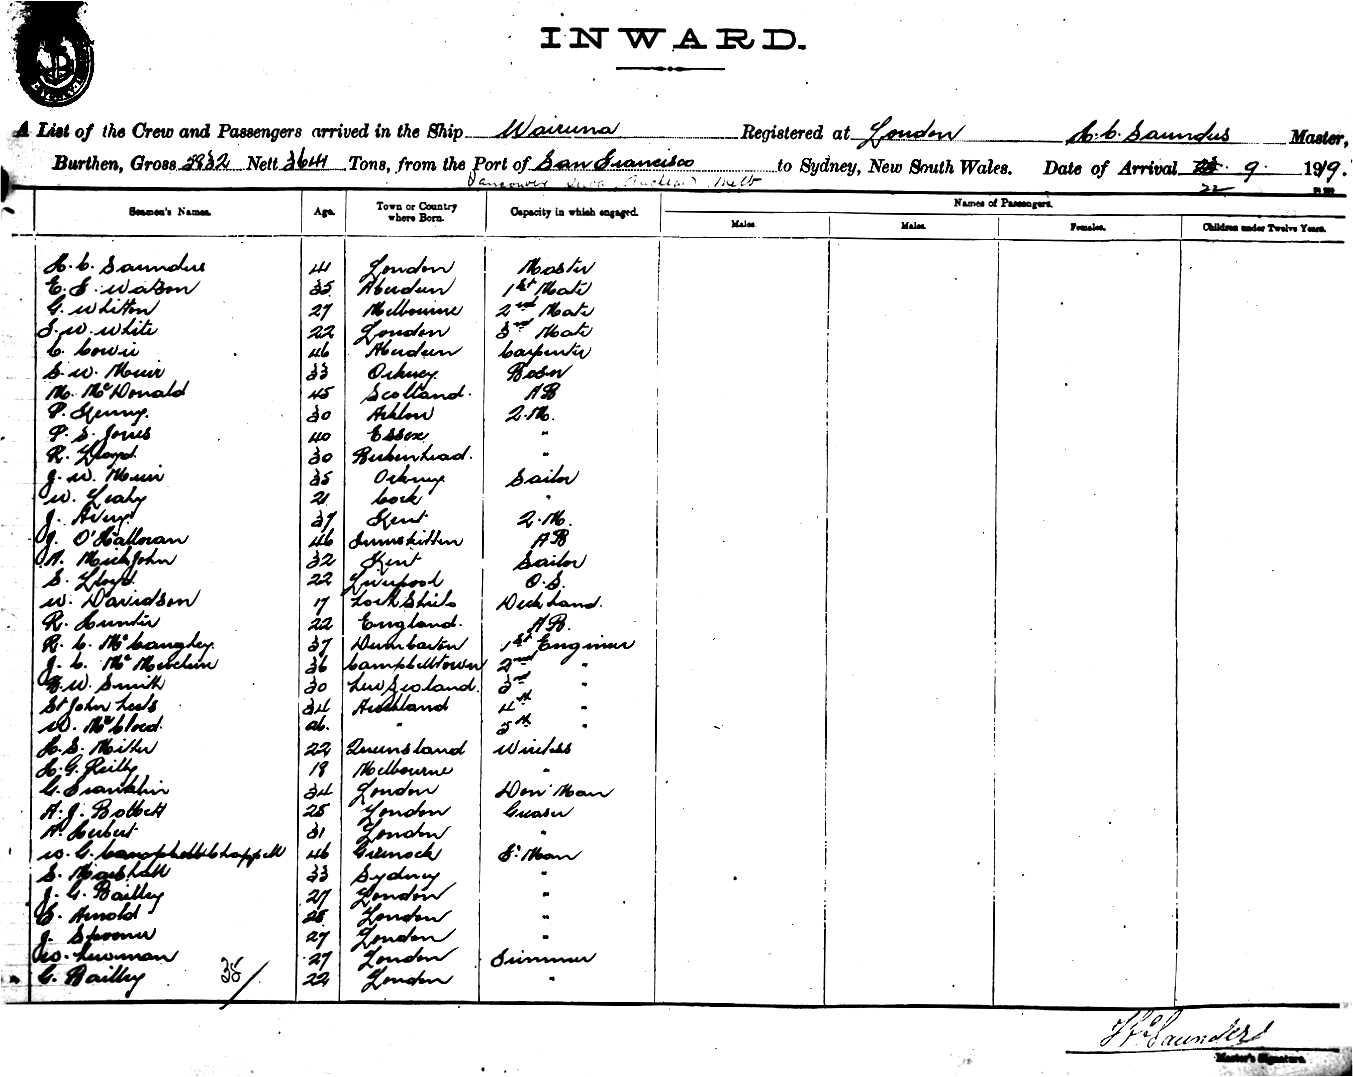 INWARD.
A List of the Crew and Passengers arrived in the Ship Wairuna Registered at London H. C. Saunders Master,
Burthen, Gross Nett 3641 Tons, from the Port of San Francisco to Sydney, New South Wales. Date of Arrival 9. 1919.
Vancouver Suva Auckland Melb 22
Seamen's Names. Age. Town or Country where Born. Capacity in which engaged. Names of Passengers.
Males. Males. Females. Children under Twelve Years.
H. C. Saunders 41 London Master
E. S. Watson 35 Aberdeen 1st Mate
G. Whitton 27 Melbourne 2nd Mate
S. W. White 22 London 3rd Mate
C. Cowie 46 Aberdeen Carpenter
S. W. Muir 33 Orkney Bosn
M. McDonald 45 Scotland. AB
P. Kenny. 30 2.M.
P. S. Jones 40 Essex "
R. Lloyd. 30 Berkenhead. "
J. W. Muir 35 Orkney Sailor
W. Leahy 21 Cork "
J. Avery 37 Kent 2.M.
J. O'Halloran 46 AB
A. MickJohn 32 Kent Sailor
S. Lloyd. 22 Liverpool O.S.
W. Davidson 17 Deck hand.
R. Hunter 22 England. AB.
R. C. McCaughey. 37 Dumbarton 1st Engineer
J. C. 36 Campbelltown 2nd "
W. Smith 30 New Zealand. 3rd "
St John Lees 34 Auckland 4th "
W. McCloed. 26. " 5th "
H. S. 22 Queensland Wireless
H. G. Reilly 19 Melbourne "
G. Franklin 34 London Don Man
A. J. 25 London Greaser
A. Herbert 31 London "
W. G. Campbell Chappell 46 Greenock F. Man
S. Marshall 33 Sydney "
J. G. Bailley 27 London "
E. Arnold 25 London "
J. Spooner 27 London "
W. Newman 27 London Trimmer
G. Bailley 35/ 22 London "
H C Saunders
Master's Signature.